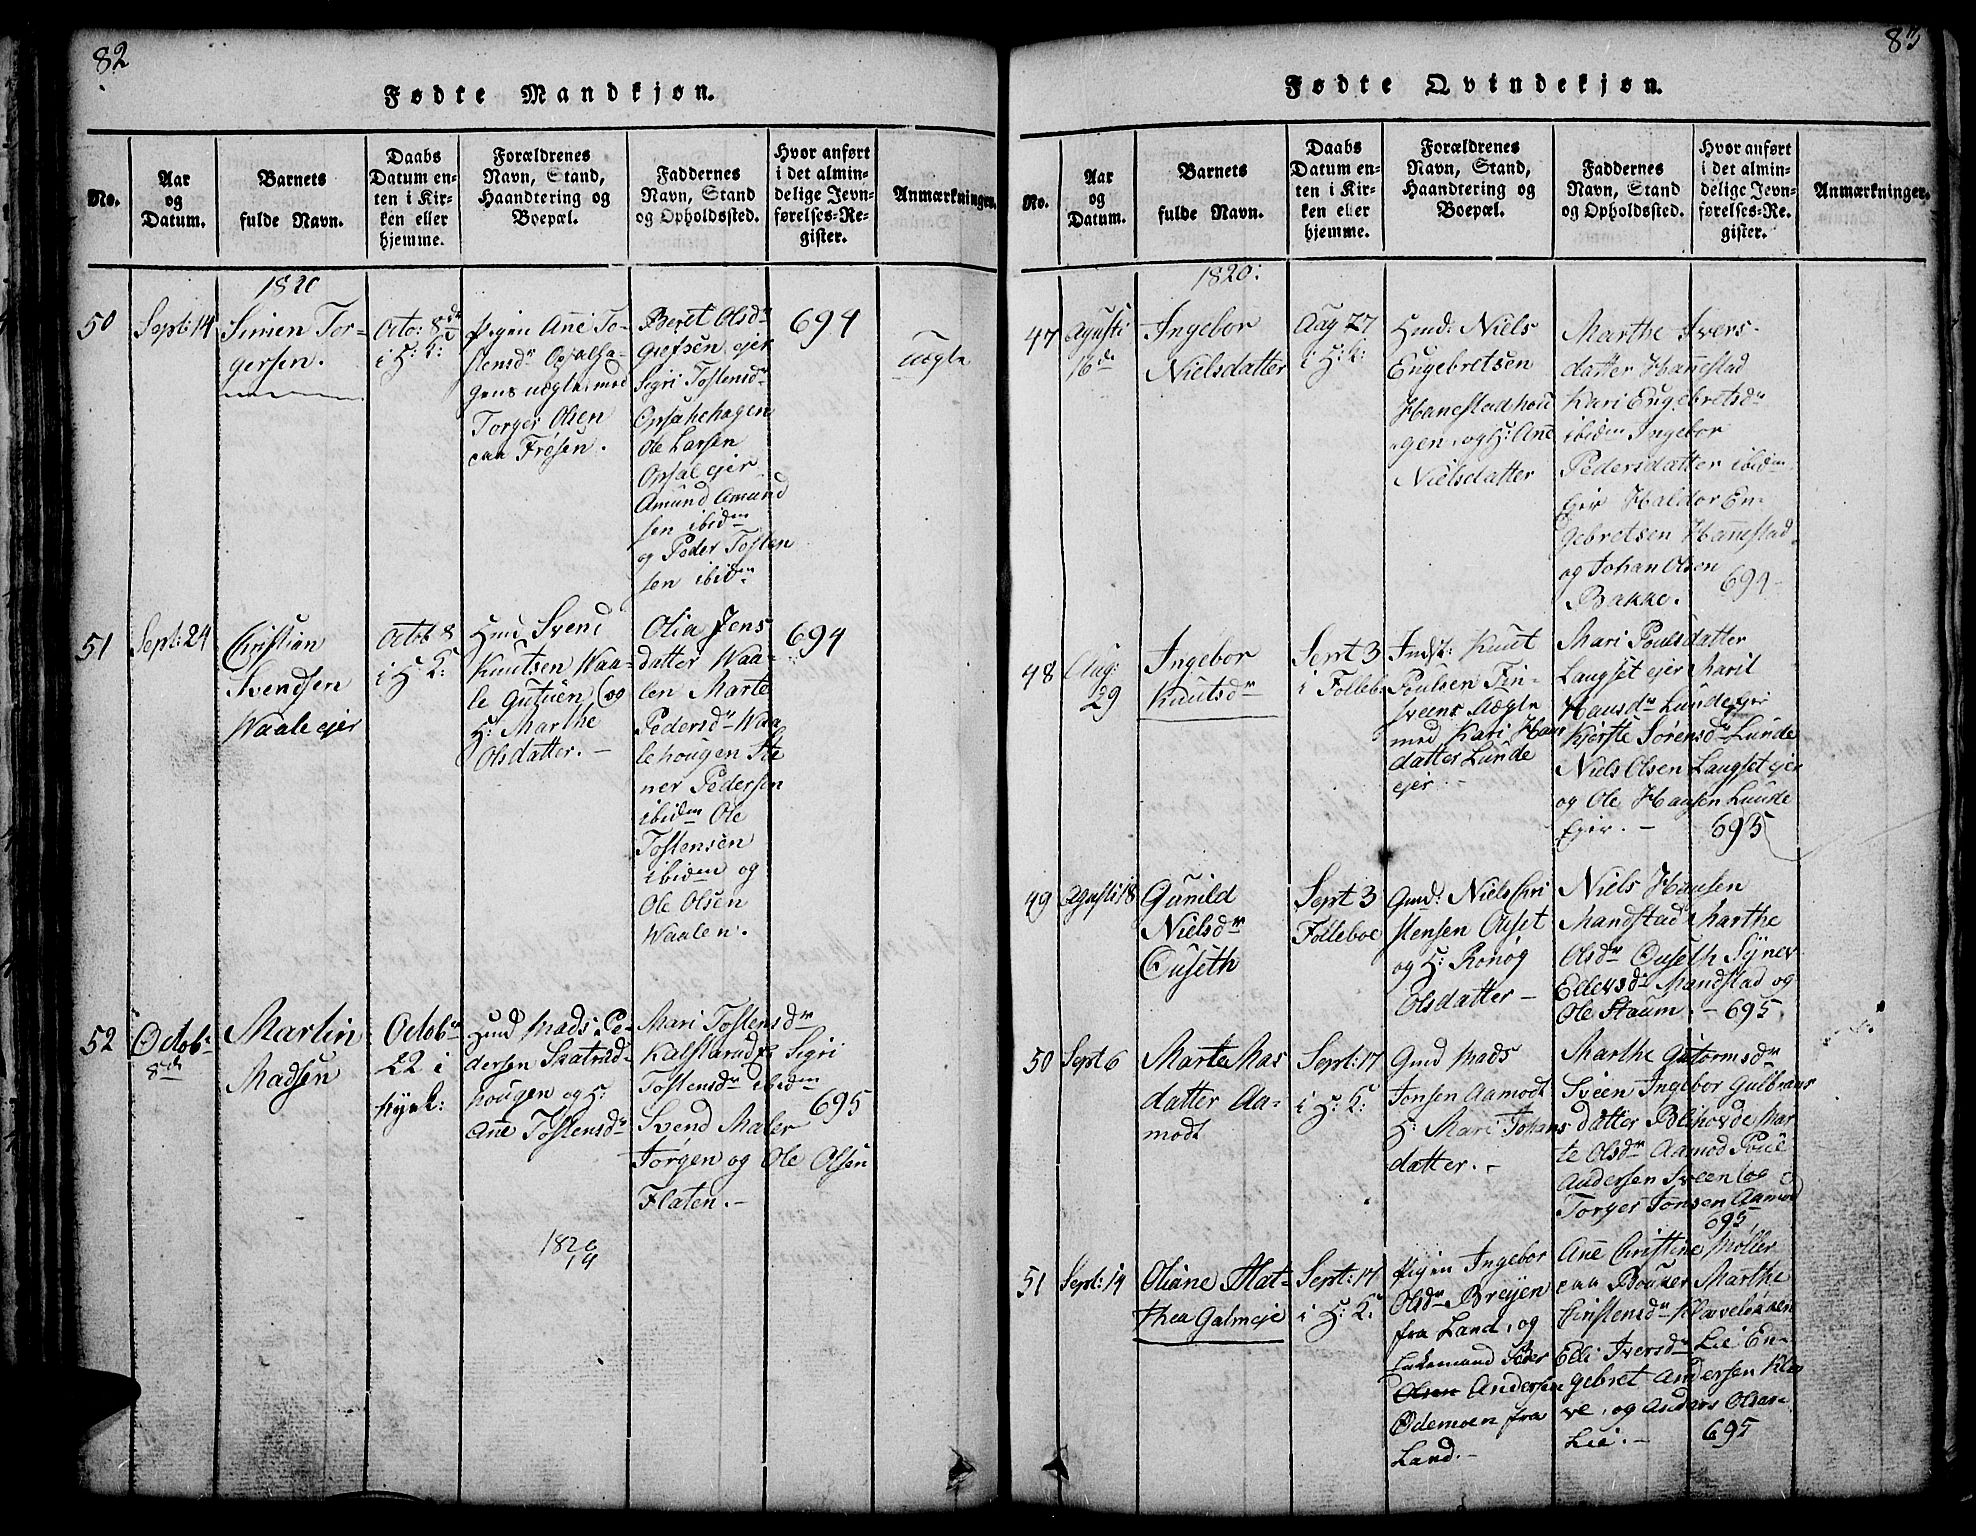 82
Fødte Mandkjøn.
No.
Aar
og
Datum.
Barnets
fulde Navn.
Daabs
Datum en-
ten i Kir-
ken eller
hjemme.
Forældrenes
Navn, Stand,
Haandtering og
Boepæl.
Faddernes
Navn, Stand
og Opholdssted.
Hvor anført
i det almin-
delige Jevn-
førelses-Re-
gister.
Anmærkninger.
1820
50
Sept: 14
Simen Tor-
gersen.
Octo: 8de
i H: K:
Pigen Ane To-
stensdr Opsalha-
gens uægte, med
Torger Olsen
paa Frøsen.
Beret Olsdr
Grefsen ejer
Sigri Tostensdr
Opsalhehagen
Ole Larsen
Opsal ejer
Amund Amund
sen ibidm
og Peder Tosten
sen ibidm
694
uægte
51
Sept: 24
Christian
Svendsen
Waale ejer
Octob 8
i H: K:
Hmd Svend
Knutsen Waa-
le Gutuen (og
H: Marthe
Olsdatter. -
Olia Jens
datter Waa-
len Marte
Pedersdr Waa
lehougen Ste
ner Pedersen
ibidm Ole
Tostensen
ibidm og
Ole Olsen
Waalen.
694
52
Octobr
8de
Martin
Madsen
Octobr
22 i
Kyrk:
Hmd Mads Pe-
dersen Skatrud
hougen og H:
Ane Tostensdr
Mari Tostensdr
Kalstarud Sigri
Tostensdr ibidm
Svend Maler
Jørgen og Ole Olsen
Flaten. -
695
1820
19
83
Fødte Qvindekjøn.
No.
Aar
og
Datum.
Barnets
fulde Navn.
Daabs
Datum en-
ten i Kir-
ken eller
hjemme.
Forældrenes
Navn, Stand,
Haandtering og
Boepæl.
Faddernes
Navn, Stand
og Opholdssted.
Hvor anført
i det almin-
delige Jevn-
førelses-Re-
gister.
Anmærkninger.
1820:
47
Agusti
16de
Ingebor
Nielsdatter
Aug 27
i H: K:
Hmd: Niels
Engebretsen
Hanestadhou
gen, og H: Ane
Nielsdatter
Marthe Ivers-
datter Hanestad
Kari Engebretsdr
ibidm Ingebor
Pedersdatter ibidm
Ejer Haldor En-
gebretsen Hanestad
og Johan Olsen
Bakke.
694
48
Aug:
29
Ingebor
Knutsdr
Sept 3
i Folleb:
Indst: Knut
Poulsen Fin-
sveens Uægte
med Kari Han
datter Lunde
ejer. -
Mari Poulsdatter
Laugset ejer Marit
Hansdr Lunde ejer
Kjerste Sørensdr Lunde
Niels Olsen Laugset ejer
og Ole Hansen Lunde
Ejer. -
695
49
Agusti 18
Gunild
Nielsdr
Ouseth
Sept 3
Folleboe
Gmd: Niels Chri
stensen Ouset
og H: Ronog
Olsdatter -
Niels Hansen
Mandstad Marthe
Olsdr Ouseth Synev
Ellevsdr Mandstad og
Ole Staum. - 695.
50
Sept 6
Marte Mas
datter Aa-
modt
Sept: 17
i H: K:
Gmd Mads
Jonsen Aamodt
H: Mari Johans
datter. -
Marthe Gutormsdr
Sveen Ingebor Gulbrans
datter Blihovde Mar
te Olsdr Aamod Poul
Andersen Sveen (og
Torger Jonsen Aamod
695
51
Sept: 14
Oliane Mat-
thea Galmeje
Sept: 17
i H: K:
Pigen Ingebor
Olsdr Breyen
fra Land, og
Lakemand Peder
Olsen Andersen
Ødemoen fra
Land. -
Ane Christine Møller
paa Bouker Marthe
Christensdr
Elli Iversdr Lie En-
gebret Andersen Klø
ve, og Anders Olsen
Lie. -
695